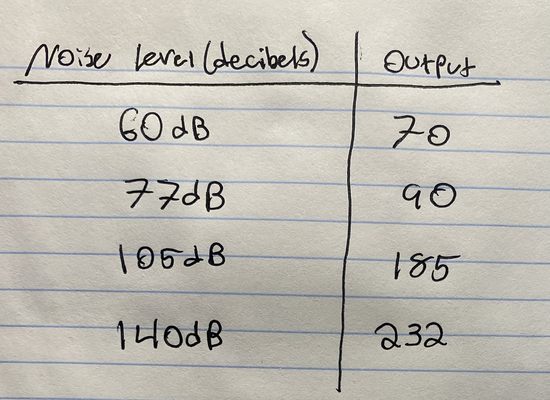 Noise level (decibels) Output
60 dB 70
77dB 90
105dB 185
140dB 232